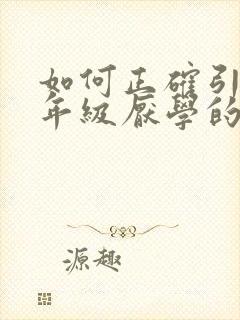 如何正確引
年級厭學的
源趣